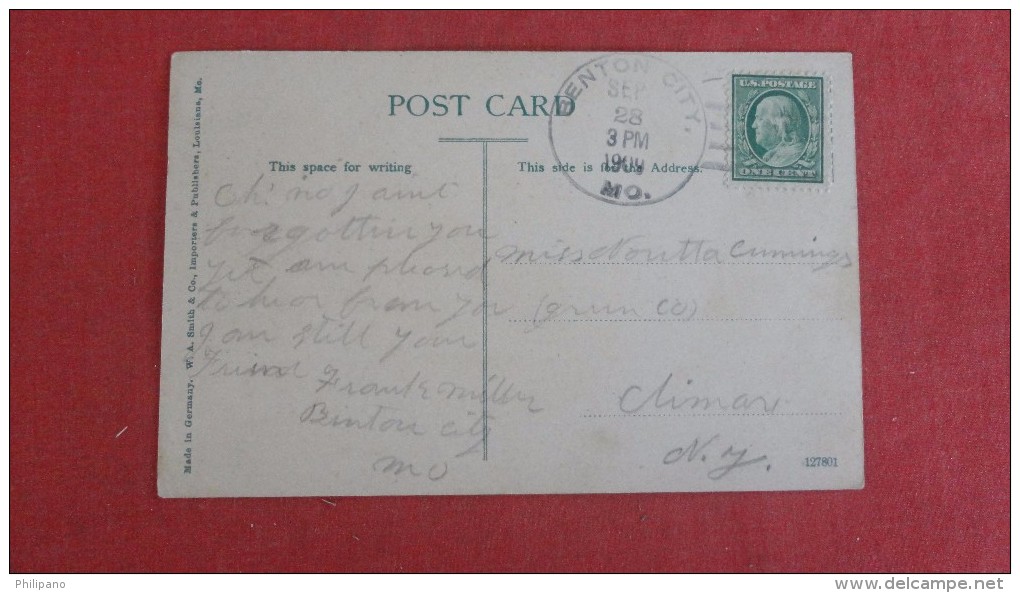 POST CARD
This space for writing
This side is for the Address.
BENTON CITY,
SEP
28
3 PM
1909
MO.
U.S. POSTAGE
ONE CENT
Oh! no I aint
forgotten you
yet am pleased
to hear from you
I am still your
Friend
Frank Miller
Benton City
Mo
Miss Cummings
(Green Co)
Climax
N.Y.
127801
Made in Germany. W. A. Smith & Co., Importers & Publishers, Louisiana, Mo.
Philipano
www.delcampe.net